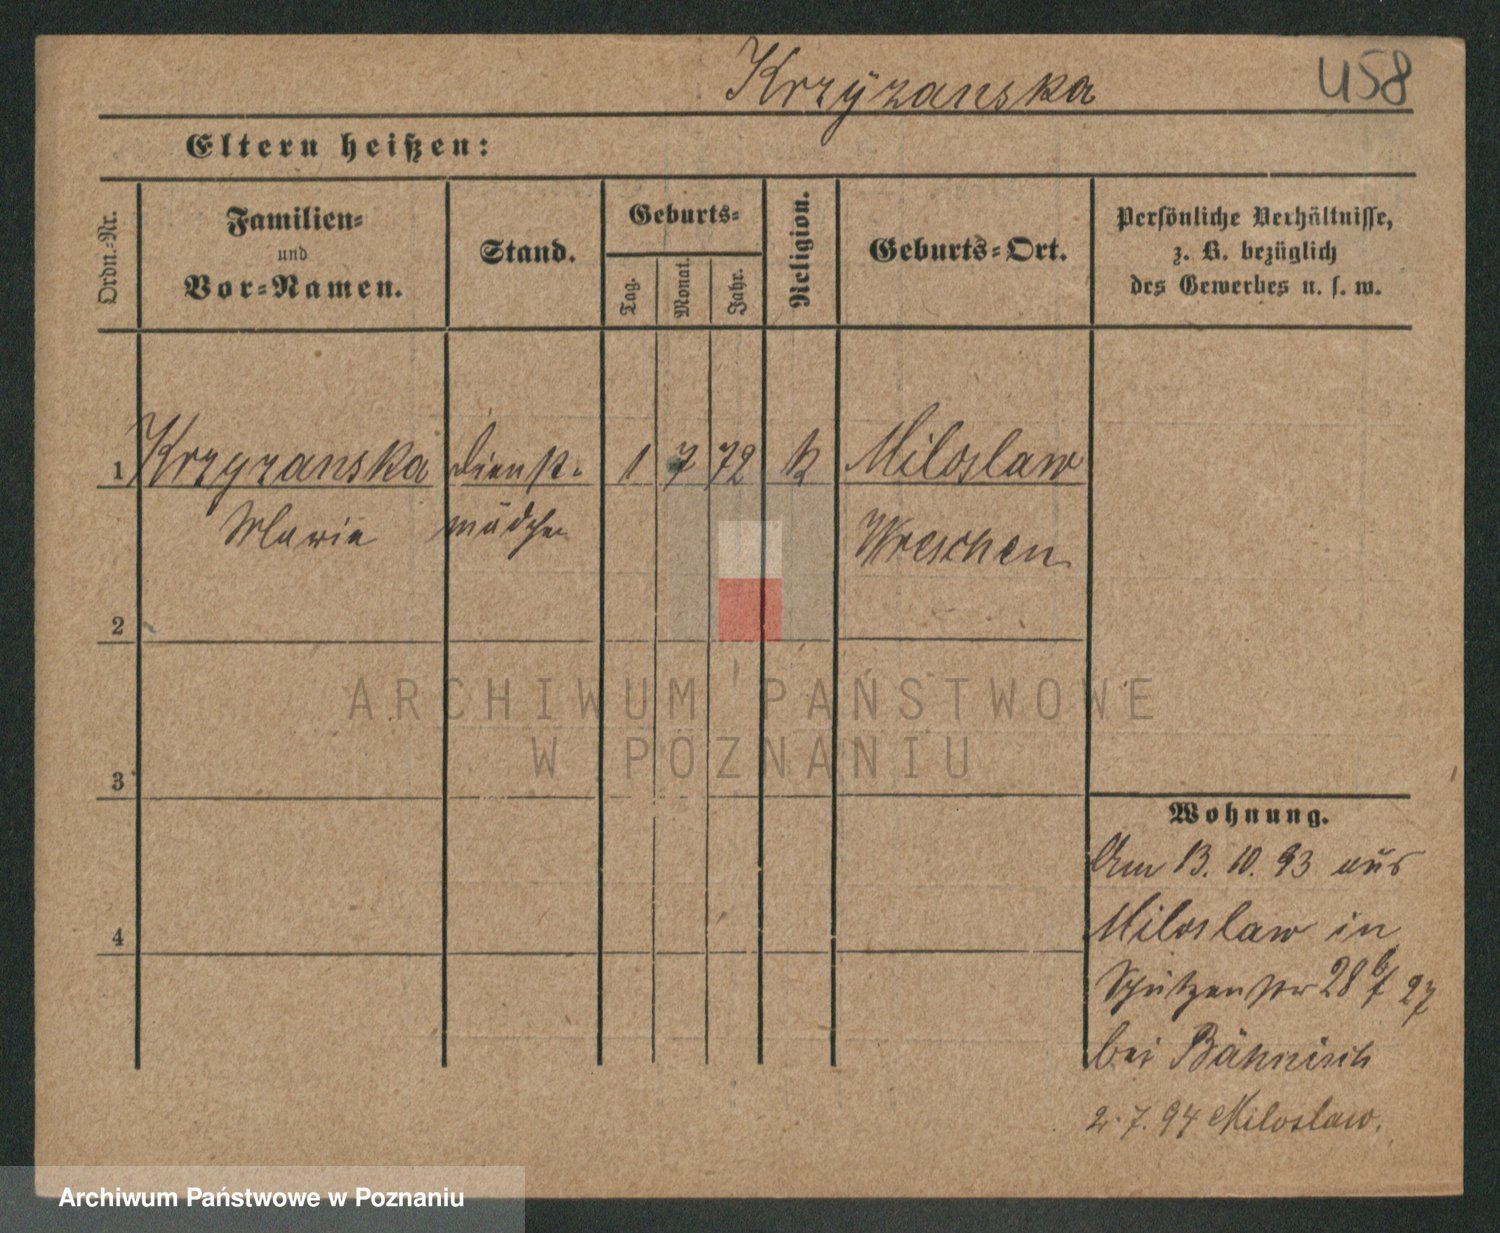 Krzÿzanska
458
Eltern heißen:
Ordn.-Nr.
Familien-
und
Vor-Namen.
Stand.
Geburts-
Tag.
Monat.
Jahr.
Religion.
Geburts-Ort.
Persönliche Verhältnisse,
z. B. bezüglich
des Gewerbes u. s. w.
1 Krzyzanska Dienst- 1 7 72 k Miloslaw
Marie mädchen Wreschen
2
ARCHIWUM PAŃSTWOWE
W POZNANIU
3
Wohnung.
Am 13. 10. 93 aus
4
Miloslaw in
28 27
bei Bähnisch
2. 7. 94 Miloslaw.
Archiwum Państwowe w Poznaniu